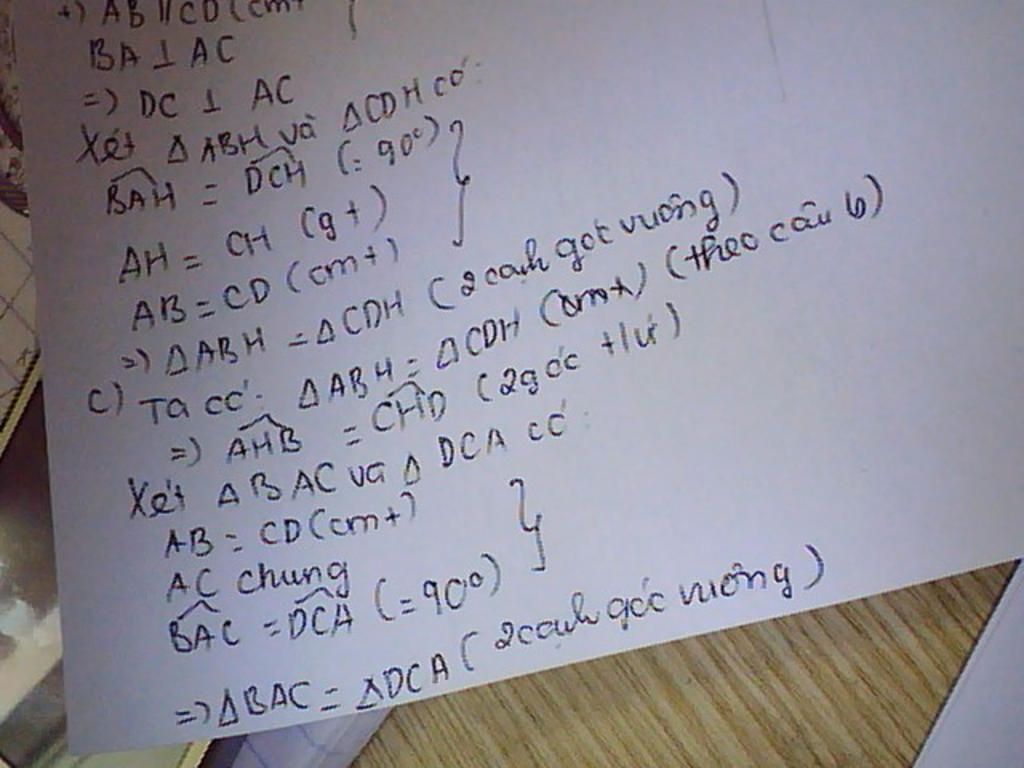 +) AB // CD (cmt
BA ⊥ AC
=) DC ⊥ AC
Xét Δ ABH và ΔCDH có:
BAH = DCH (= 90°)
AH = CH (gt)
AB = CD (cmt)
=) ΔABH = ΔCDH (2 cạnh góc vuông)
c) Ta có: ΔABH = ΔCDH (cmt) (theo câu b)
=) AHB = CHD (2 góc t/ứ)
Xét ΔBAC và Δ DCA có:
AB = CD (cmt)
AC chung
BAC = DCA (= 90°)
=) ΔBAC = ΔDCA (2 cạnh góc vuông)